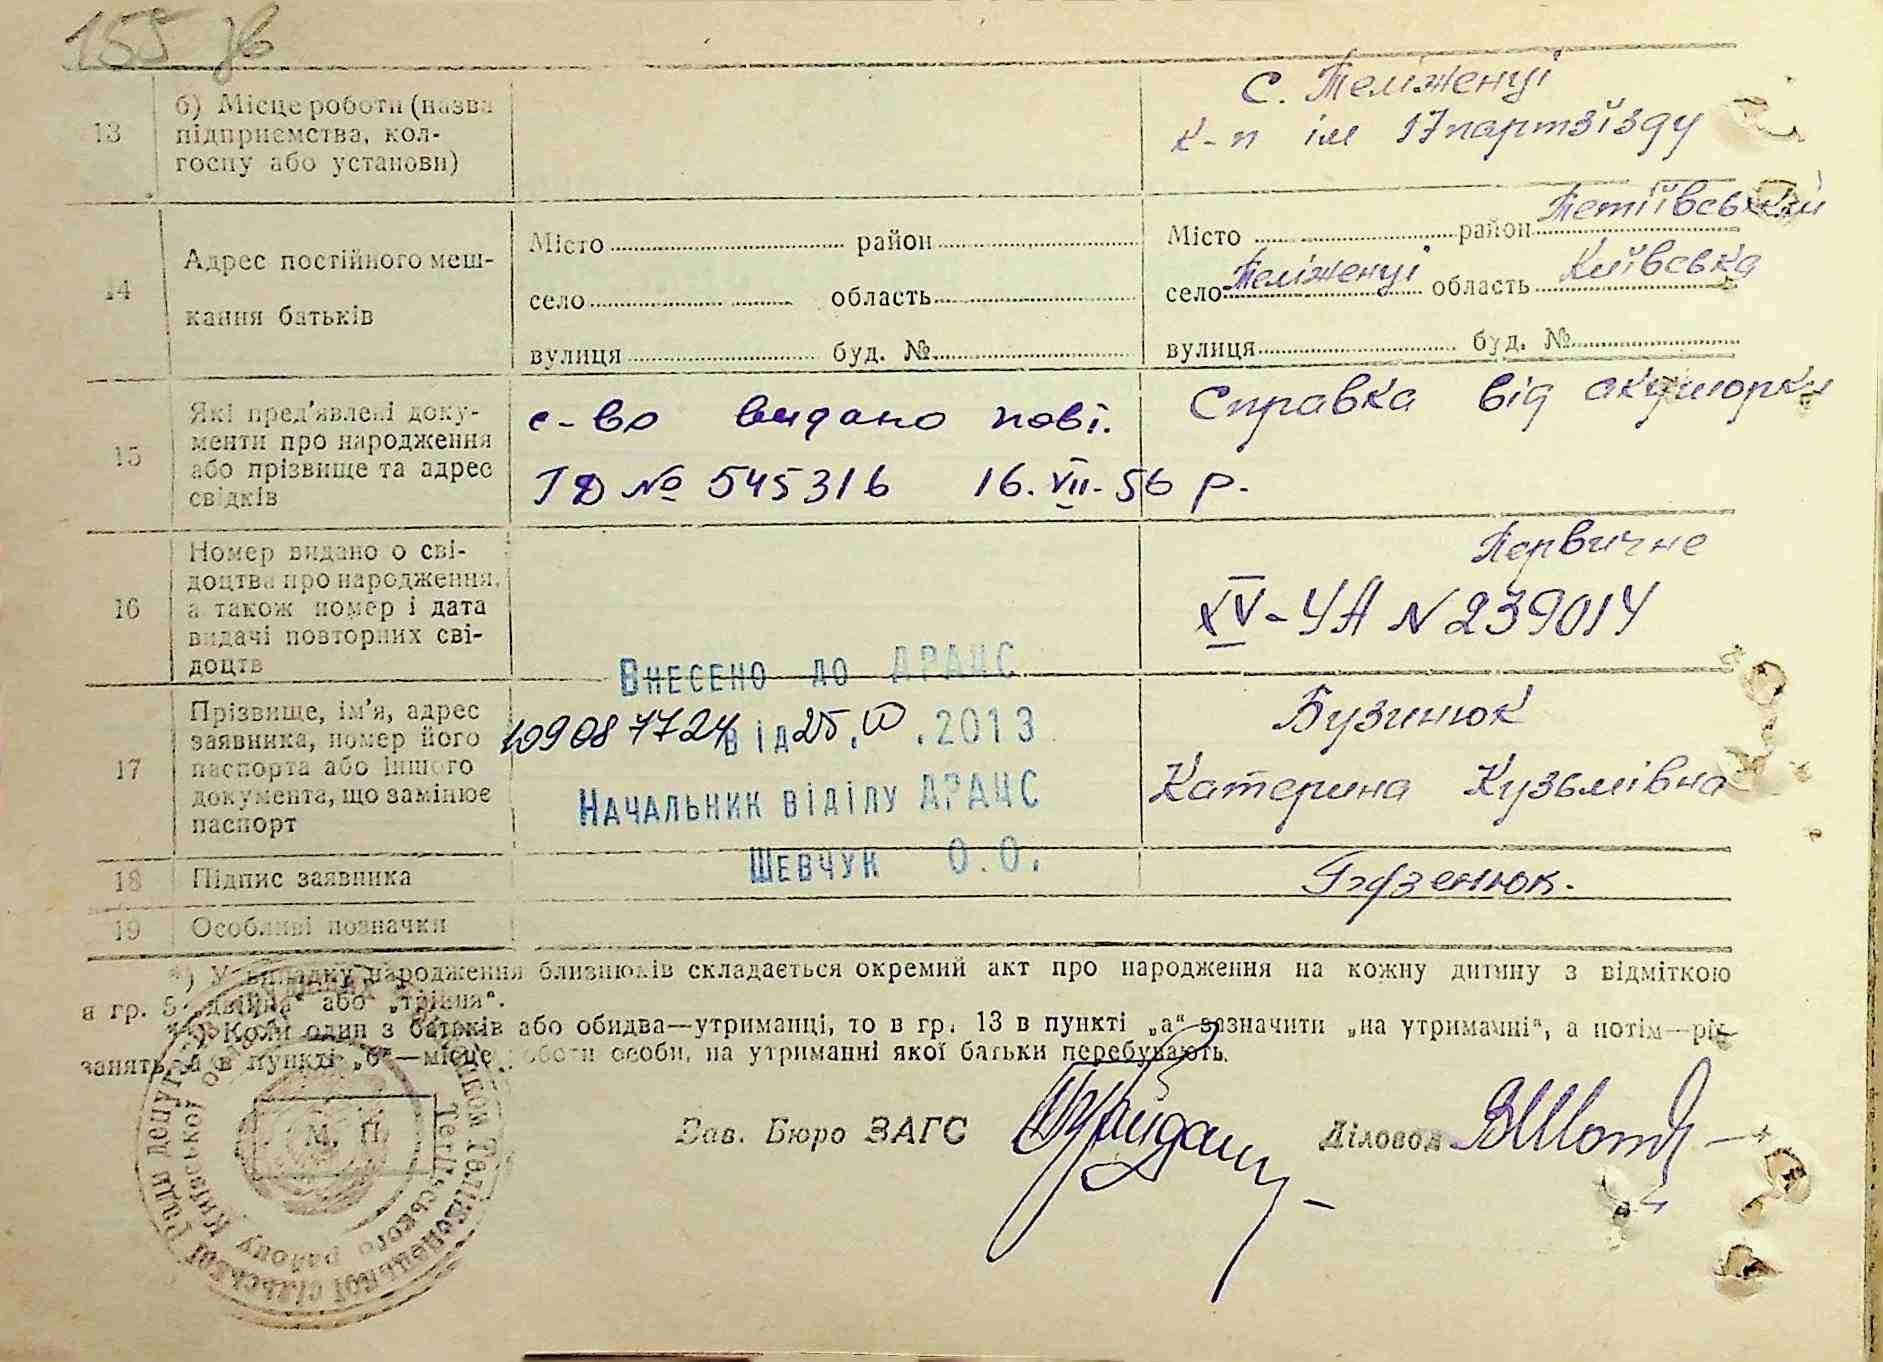 155 зв
13 б) Місце роботи (назва підприємства, колгоспу або установи)
с. Теліженці
к-п ім 17 партзїзду
14 Адрес постійного мешкання батьків
Місто район
село область
вулиця буд. №
Місто район Тетіївський
село Теліженці область Київська
вулиця буд. №
15 Які пред'явлені документи про народження або прізвище та адрес свідків
с-во видано повт.
ІД № 545316 16.VII-56 р.
Справка від акушорки
16 Номер видано о свідоцтва про народження, а також номер і дата видачі повторних свідоцтв
Первичне
XV-УА N 239014
Внесено до ДРАЦС
109087724 від 25. .2013
Начальник віділу ДРАЦС
Шевчук О.О.
17 Прізвище, ім'я, адрес заявника, номер його паспорта або іншого документа, що замінює паспорт
Бузинюк
Катерина Кузьмівна
18 Підпис заявника
19 Особливі позначки
*) У випадку народження близнюків складається окремий акт про народження на кожну дитину з відміткою
в гр. 5 „двійня" або „трійня".
Коли один з батьків або обидва—утриманці, то в гр. 13 в пункті „а" зазначити „на утриманні", а потім—рід
занять, а в пункті „б"—місце роботи особи, на утриманні якої батьки перебувають.
Зав. Бюро ЗАГС
Діловод
М. П.
Теліженецької сільської Ради депут
Тетіївського району Київської